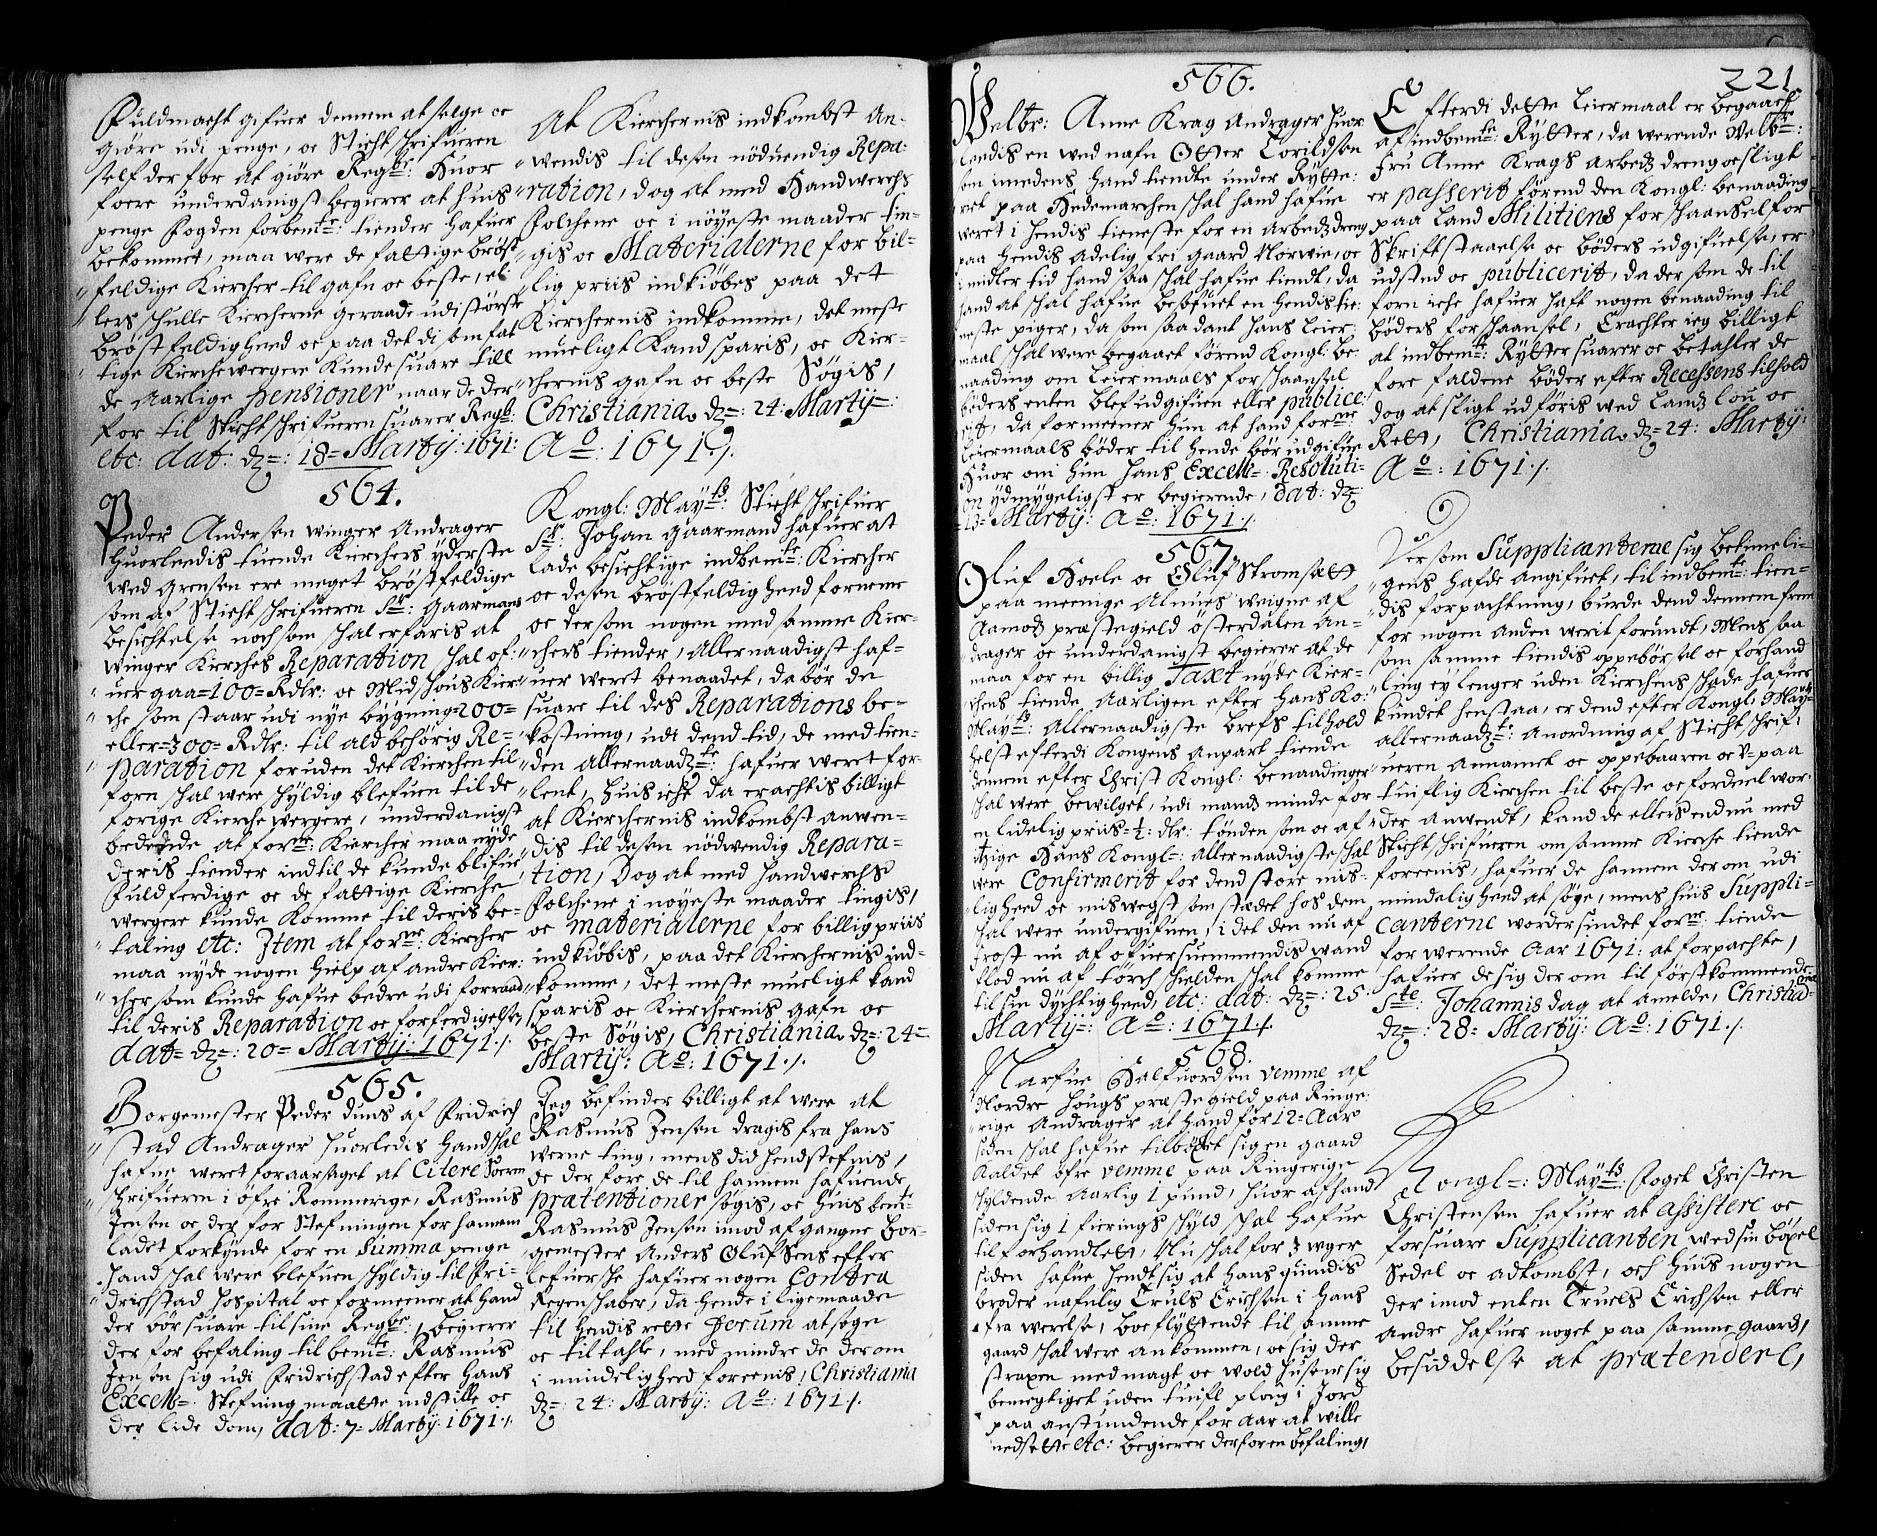 Fuldmacht gifuer dennem at selge oc
Giøre udi penge, oc Sticht schrifueren
self der for at giøre Regbr: Huor
foere underdanigst begierer at huis
penge Fogden forbemte: tiender hafuer
bekommet, maa were de fattige brøst
feldige Kiercher til gafn oc beste, el
lers skulle Kiercherne geraade udi største
brøstfeldigheed oc paa det di som fat
tige Kierchewergere kunde suare till
de Aarlige pensioner naar de der
for til Stichtschrifueren suarer Regb:
etc: dat: dz=: 18= Martÿ: 1671:
564.
Peder Andersen winger Andrager
huorledis tuende Kierchers ÿderste
wed Grensen ere meget brøstfeldige
som af Stichtschrifueren Sr: Gaarmans
besichtelse noch som schal erfaris at
winger Kierches Reparation schal of-
uer gaa=100=Rdlr: oc Midschous Kier
che som staar udi nye bÿgning=200=
eller=300= Rdlr: til ald behørig Re=
paration foruden det Kierchen til
forn schal were schÿldig blefuen til de
forige Kierchewergere, underdanigst
bedende at forne: Kiercher maa nÿde
deris tiender indtil de kunde blifue
fuldferdige oc de fattige Kierche
wergere kunde komme til deris be=
taling etc: Item at forne: Kiercher
maa nÿde nogen hielp af andre Kier:
cher som kunde hafue bedre udi forraad
til deris Reparation oc forferdigelse
dat= dz=: 20= Martÿ: 1671./.
565.
Borgemester Peder dius af Fridrich
stad Andrager huorledis hand schal
hafue weret foraarsaget at Citere Soren
schrifueren i øfre Rommerige, Rasmus
Jensen oc der for Stefningen for hannem
ladet forkÿnde for en Summa penge
hand schal were blefuen schÿldig til Fri-
drichstad Hospital oc formeener at hand
der bør suare til sine Regbr, begierer
der for befaling til bemte: Rasmus
Jensen sig udi Fridrichstad efter Hans
Excell=: Stefning maatte indstille oc
der lide dom, dat: 7= Martÿ: 1671./.
At Kierchernis indkombst An-
wendis til desen nöduendig Repa-
ration, dog at med Handwerchs
Folchene oc i nöÿeste maader tin-
gis oc Materialerne for bil-
lig priis indkiöbes paa det
Kierchernis indkomme, det meste
mueligt kand sparis, oc Kier-
chernis gafn oc beste Søgis,
Christiania dz=: 24: Martÿ=:
Ao=: 1671./.
Kongl: Maÿts: Stichtschrifuer
Sr: Johan Gaarmand hafuer at
lade besichtige indbemte: Kiercher
oc desen brøstfeldigheed forneme
oc der som nogen med samme Kier-
chers tiender, Allernaadigst haf-
uer weret benaadet, da bør de
suare til des Reparations be-
kostning, udi dend tid, de med tien-
den allernaadzte: hafuer weret for-
lent, Huis icke da erachtis billigt
at Kierchernis indkombst anwen-
dis til desen nödwendig Repara-
tion, Dog at med handwerchs
Folchene i nöÿeste maader tingis,
oc materialerne for billig priis
indkiöbis, paa det Kierchernis ind-
komme, det meste mueligt kand
sparis oc Kierchernis gafn oc
beste Søgis, Christiania dz=: 24=
Martÿ: Ao=: 1671./.
Jeg befinder billigt at were at
Rasmus Jensen dragis fra hans
werne ting, mens did hendstefnis,
de der fore de til hannem hafuende
prætentioner søgis, oc Huis bemte
Rasmus Jensen imod afgangne Bor-
gemester Anders Olufsens efter
lefuersche hafuer nogen Contra
Regenschaber, da hende i ligemaade
til hendis rette Forum at søge
oc tiltahle, med mindre de derom
i mindeligheed foreenis, Christiania
dz=: 24: Martÿ: Ao=: 1671./.
221
566.
Welbr: Anne Krag Andrager huor
ledis en wed nafn Otter Torildsen
som imedens hand tiendte under Rÿtte:
riet paa Hedemarchen schal hand hafue
weret i hendis tieneste for en arbedz dreng
paa hendis Adelig fri gaard Norwin, oc
imidler tid hand saa schal hafue tiendt, da
hand at schal hafue besøfuet en hendis tie-
neste piger, da som saadant hans leier-
maal schal were begaaet førend Kongl: Be
naading om leiermaals forschaansel
bøders enten blef udgifuen eller publice-
rit, da formeener hun at hand forne
leiermaals bøder til hende bør udgifue
Huor om hun hans Excell=: Resoluti-
on ÿdmÿgeligst er begierende, dat: dz=
13= Martÿ: Ao=: 1671./.
567.
Oluf Hoele oc Oluf Strømsætt
paa meenige Almues weigne af
Aamodz præstegield østerdalen An-
drager oc underdanigst begierer at de
maa for en billig Taxt nÿde Kier-
chens tiende Aarligen efter Hans Ko:
Maÿts: Allernaadigste brefs tilhold
helst efterdi Kongens anpart tiende
dennem efter Christ Kongl: benaadinger
schal were bewilget, udi mandz minde for
en lidelig priis=½: dlr: tønden som oc af
itzige Hans Kongl=: Allernaadigste schal
were Confirmerit for dend store mis-
ligheed oc miswegst som stædet hos dem
schal were undergifuen, i det den nu af
frost nu af ofuersuemmendis wand
flod nu af tørch schielden schal komme
til sin dÿchtigheed, etc: dat: dz=: 25:
Martÿ=: Ao=: 1671./.
568.
Narfue Halfuordsen vemme af
Nordre Hougs præstegield paa Ringe-
rige Andrager at hand for 12=Aar
siden schal hafue tilbÿtet sig en gaard
kaldet øfre vemme paa Ringerige
schÿldende Aarlig 1 pund, huor af hand
siden sig 1 fierings schÿld schal hafue
tilforhandlett, Nu schal for 3 wger
siden hafue hendt sig at hans quindis
broder nafnlig Truls Erichsen i hans
fra werelse, boe flÿttende til samme
gaard schal were ankommen, oc sig der
straxen med magt oc wold husene sig
bemegtiget uden tuifl ploug i Jord
paa anstundende for aar at wille
nedsette etc: begierer derfor en befaling,
Efterdi dette leiermaal er begaaet
af indbemte: Rÿtter, da werende Welbr:
Fru Anne Krags arbedz dreng oc sligt
er passerit førend den Kongl: benaading
paa Land Militiens forschaansel for
Skriftstaaelse oc bøders udgifuelse, er
udsted oc publicerit, da der som de til
forn icke hafuer haft nogen benaading til
bøders forschaansel, Erachter ieg billigt
at indbemte: Rÿtter suarer oc betahler de
fore faldene bøder efter Recessens tilhold
dog at sligt udføris wed Landz lou oc
Rett, Christiania dz=24: Martÿ:
Ao=: 1671./.
Dersom Supplicanterne sig betimeli-
gens hafde angifuet, til indbemte: tien-
dis forpachtning, burde dend dennem frem
for nogen anden werit forundt, Mens saa
som samme tiendis oppebørsel oc forhand
ling eÿ lenger uden Kierchens schade hafuer
kundet henstaa, er dend efter Kongl: Maÿts:
allernaadzte: anordning af Stichtschrif-
ueren annamet oc oppebaaren oc v-paa
tuiflig Kierchen til beste oc fordeel wor-
der anwendt, kand de ellers endnu med
Stichtschrifueren om samme Kierche tiende
foreenis, hafuer de hannem derom udi
mindeligheed at søge, mens huis Suppli-
canterne worder sindet forne: tiende
for werende Aar 1671: at forpachte,
hafuer de sig der om til førstkommende
Ste: Johannis dag at amelde, Christiania
dz=: 28= Martÿ: Ao=: 1671./.
Kongl=: Maÿts: Foget Christen
Christensen hafuer at assistere oc
forsuare Supplicanten wed sin bøxel
Sedel oc adkombst, och huis nogen
der imod enten Truels Erichsen eller
andre hafuer noget paa samme gaards,
besiddelse at prætendere,